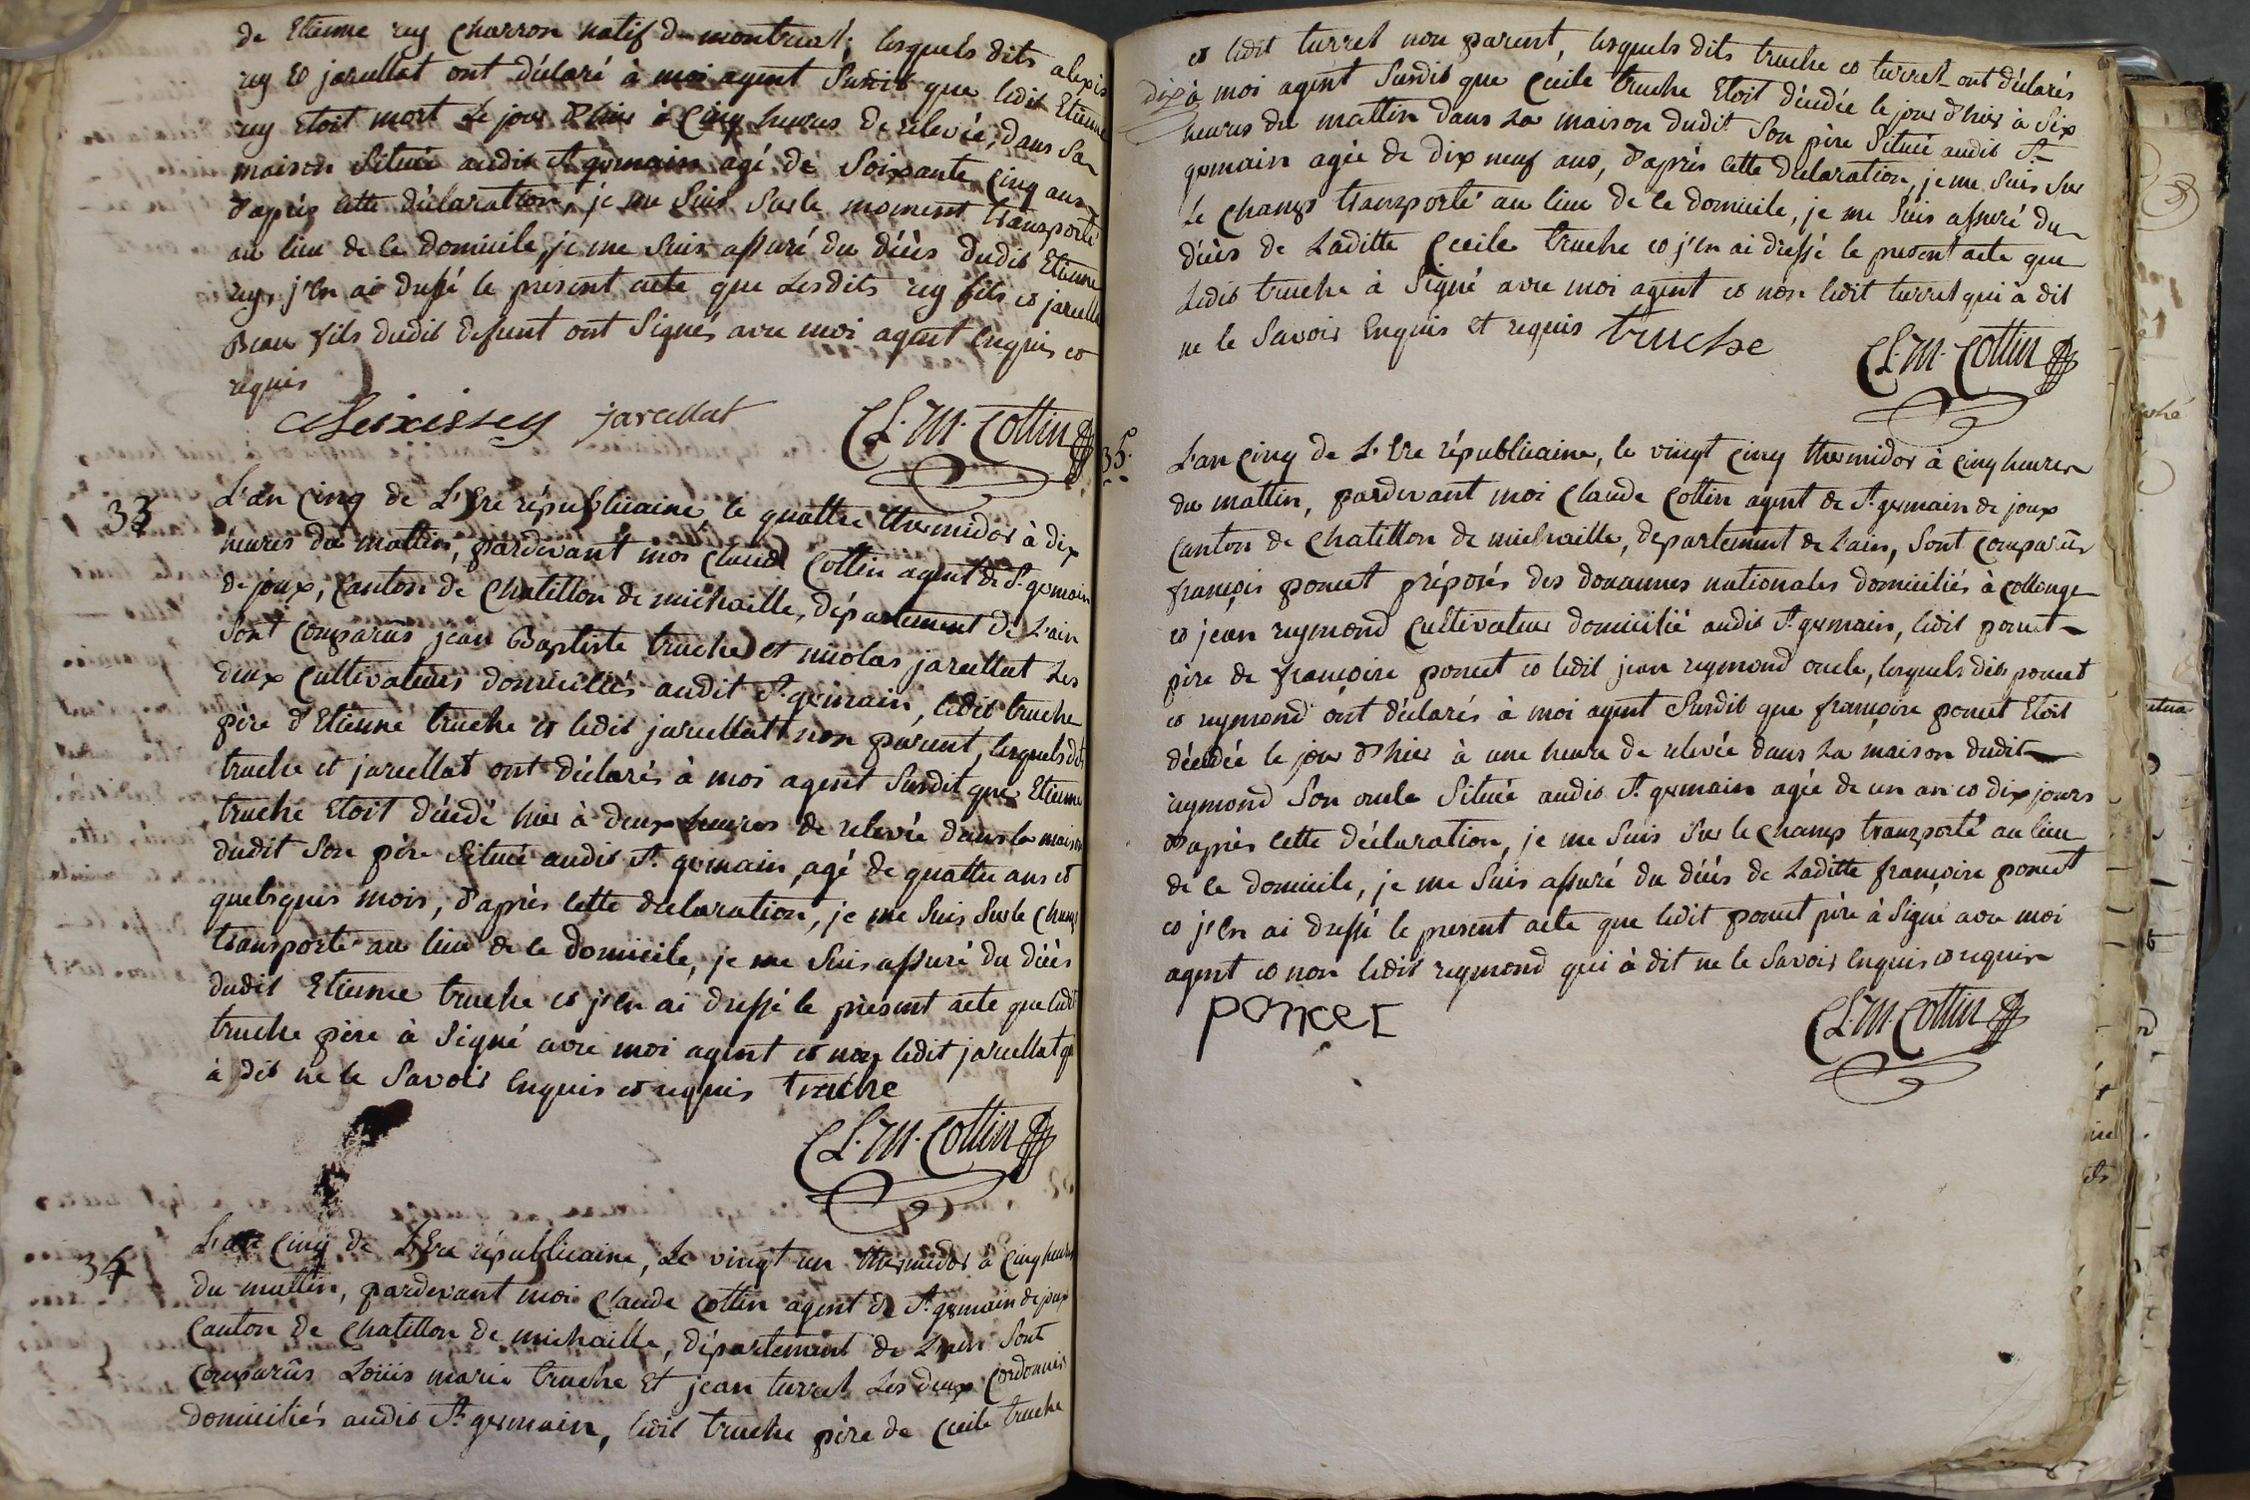 de Etienne rey Charron natif de montreal; lesquels dits alexis
rey et jarcellat ont déclaré à moi agent Susdit que ledit Etienne
rey Etoit mort le jour d'hier à Cinq heures de relevée, dans Sa
maison Située audit St. germain agé de Soixante Cinq ans,
d'après cette déclaration, je me Suis Sur le moment transporté
au lieu de ce domicile, je me Suis assuré du décès dudit Etienne
rey, j'en ai dressé le présent acte que Lesdits rey fils et jarcellat
Beau fils dudit défunt ont Signés avec moi agent Enquis et
requis
Alexis rey jarcellat Cl. M. Cottin
33
L'an Cinq de L'Ere républicaine, le quattre thermidor à dix
heures du mattin, pardevant moi Claude Cottin agent de St. germain
de joux, Canton de Chatillon de michaille, département de L'ain
Sont Comparûs jean Baptiste truche et nicolas jarcellat Les
deux Cultivateurs domiciliés audit St. germain, ledit truche
père d'Etienne truche et ledit jarcellat non parent, lesquels dits
truche et jarcellat ont déclarés à moi agent Susdit que Etienne
truche Etoit décédé hier à deux heures de relevée dans la maison
dudit Son père Située audit St. germain, agé de quattre ans et
quelsques mois, d'après cette déclaration, je me Suis Sur le Champ
transporté au lieu de ce domicile, je me Suis assuré du décès
dudit Etienne truche et j'en ai dressé le présent acte que ledit
truche père à Signé avec moi agent et non ledit jarcellat qui
à dit ne le Savoir Enquis et requis truche
Cl. M. Cottin
34
L'an Cinq de L'Ere républicaine, Le vingt un thermidor à Cinq heures
du mattin, pardevant moi Claude Cottin agent de St. germain de joux
Canton de Chatillon de michaille, département de L'ain Sont
Comparûs Loüis marie truche et jean turrel Les deux Cordonnier
domiciliés audit St. germain, ledit truche père de Cecile truche
et ledit turrel non parent, lesquels dits truche et turrel ont déclarés
dix à moi agent Susdit que Cécile truche Etoit décédée le jour d'hier à Six
heures du mattin dans La maison dudit Son père Située audit St.
germain agée de dix neuf ans, d'après cette déclaration, je me Suis Sur
Le Champ transporté au lieu de ce domicile, je me Suis assuré du
décès de Laditte Cecile truche et j'en ai dressé le présent acte que
Ledit truche à Signé avec moi agent et non ledit turrel qui à dit
ne le Savoir Enquis et requis truche
Cl. M. Cottin
35.
L'an Cinq de L'Ere républicaine, le vingt Cinq thermidor à Cinq heures
du mattin, pardevant moi Claude Cottin agent de St. germain de joux
Canton de Chatillon de michaille, departement de L'ain, Sont Comparûs
françois poncet préposés des douannes nationales domiciliés à Collonge
et jean reymond Cultivateur domicilié audit St. germain, ledit poncet
père de françoise poncet et ledit jean reymond oncle, lesquels dits poncet
et reymond ont déclarés à moi agent Susdit que françoise poncet Etoit
décédée le jour d'hier à une heure de relevée dans La maison dudit
reymond Son oncle Située audit St. germain agée de un an et dix jours
d'après cette déclaration, je me Suis Sur le Champ transporté au lieu
de ce domicile, je me Suis assuré du décès de Laditte françoise poncet
et j'en ai dressé le present acte que ledit poncet père à Signé avec moi
agent et non ledit reymond qui à dit ne le Savoir Enquis et requis
poncet
Cl. M. Cottin